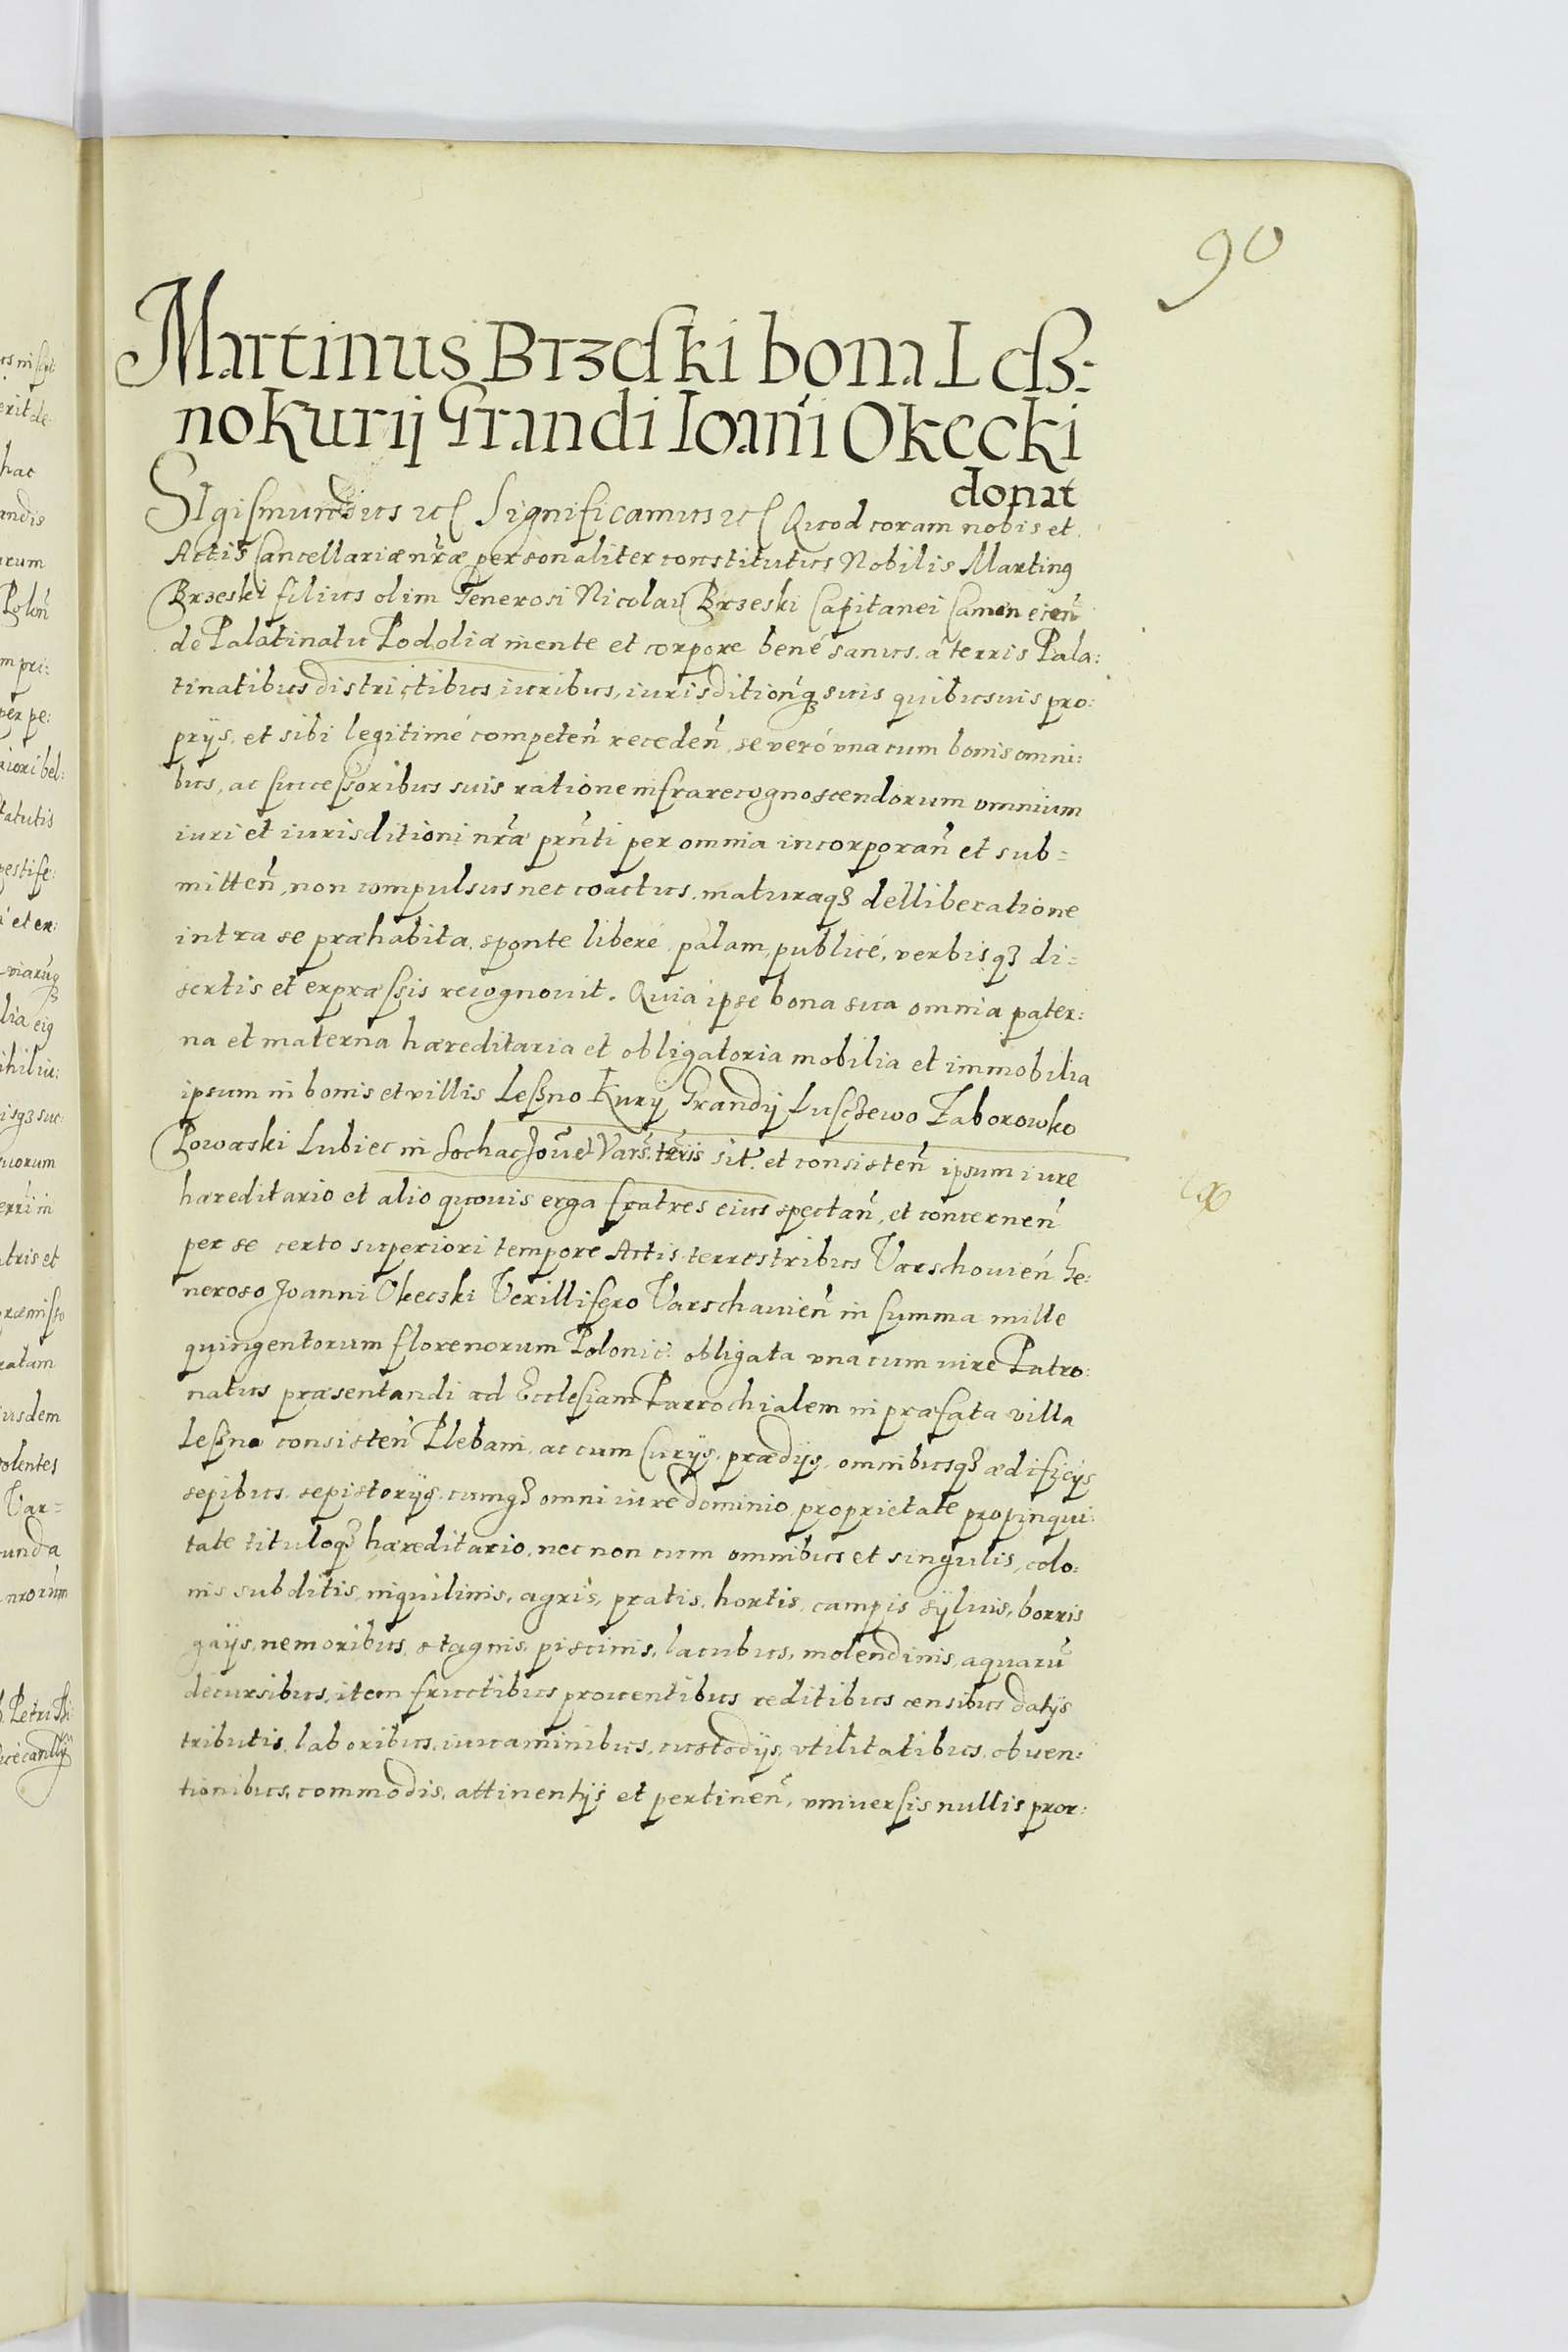 90
Martinus Brzeski bona Leß:
no Kurij Grandi Ioañi Okecki
donat
Sigismundus etc Significamus etc Quod coram nobis et
Actis Cancellariæ nr̃æ personaliter constitutus Nobilis Martinꝯ
Brzeski filius olim Generosi Nicolai Brzeski Capitanei Camenecen̄
de Palatinatu Podoliæ mente et corpore bené sanus, à terris Pala:
tinatibus districtibus, iuribus, iurisditionq̃ suis quibusuis pro:
prijs, et sibi legitimé competen̄ receden̄, se veró vna cum bonis omni:
bus, ac successoribus suis ratione infrarecognoscendorum omnium
iuri et iurisditioni nr̃æ prñti per omnia incorporan̄ et sub=
mitten̄, non compulsus nec coactus, maturaqꝫ delliberatione
intra se præhabita, sponte liberé, palam, publicé, verbisqꝫ di=
sertis et expræssis recognouit. Quia ipse bona sua omnia pater:
na et materna hæreditaria et obligatoria mobilia et immobilia
ipsum in bonis et villis Leßno Kurij Grandij Lusczewo Zaborowko
Powaski Lubiec in Sochac Joue Vars: terris sit: et consisten̄ ipsum iure
hæreditario et alio quouis erga fratres eius spectan̄, et concernen̄
per se certo superiori tempore Actis terrestribus Varschouien̄ Ge:
neroso Joanni Okecski Vexillifero Varschauien̄ in summa mille
quingentorum florenorum Polonic: obligata vna cum iure Patro:
natus præsentandi ad Ecclesiam Parrochialem in præfata villa
Leßno consisten̄ Plebani, ac cum Curijs, prædijs, omnibusqꝫ ædificijs
sepibus, sepistorijs, cumqꝫ omni iure dominio, proprietate propinqui:
tate tituloqꝫ hæreditario, nec non cum omnibus et singulis, colo:
nis subditis, inquilinis, agris, pratis, hortis, campis sijluis, borris
gaijs, nemoribus, stagnis, piscinis, lacubus, molendinis, aquarū
decursibus, item fructibus prouentibus reditibus censibus datijs
tributis, laboribus, iuuaminibus, custodijs, vtilitatibus, obuen:
tionibus, commodis, attinentijs et pertinen̄, vniuersis nullis pror: